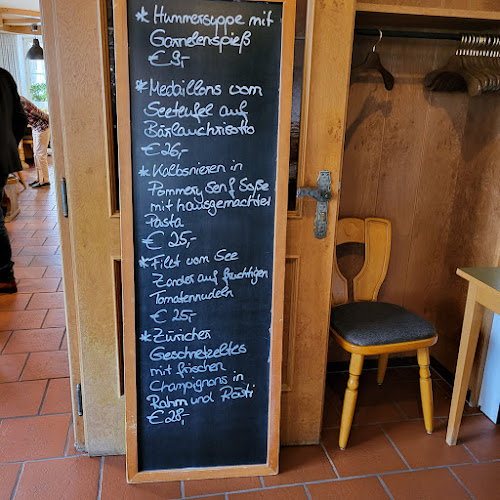 * Hummersuppe mit
Garnelenspieß
€ 9,-
* Medaillons vom
Seeteufel auf
Bärlauchrisotto
€ 26,-
* Kalbsnieren in
Pommery Senf Soße
mit hausgemachter
Pasta
€ 25,-
* Filet vom See
Zander auf fruchtigen
Tomatennudeln
€ 25,-
* Züricher
Geschnetzeltes
mit frischen
Champignons in
Rahm und Rösti
€ 28,-